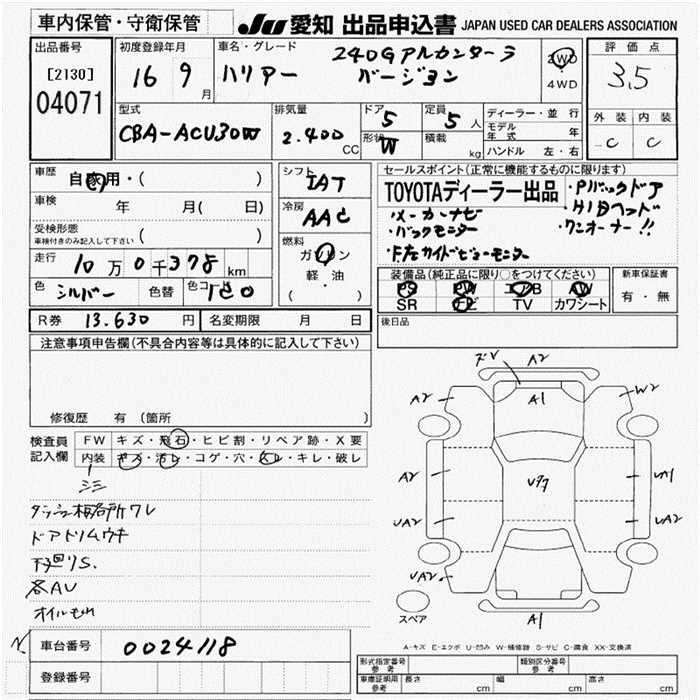 車内保管・守衛保管
JU 愛知 出品申込書 JAPAN USED CAR DEALERS ASSOCIATION
出品番号
[2130]
04071
初度登録年月
16 9 月
車名・グレード
ハリアー
240G アルカンターラ
バージョン
2WD・4WD
評価点
3.5
型式
CBA-ACU30W
排気量
2.400 CC
ドア
5
形状
W
定員
5 人
積載
kg
ディーラー・並行
モデル年式 年
ハンドル 左・右
外装 内装
C C
車歴
自家用・( )
車検
年 月( 日)
受検形態
車検付きのみ記入して下さい ( )
走行
10万0千378 km
色
シルバー
色替
色コード
1C0
シフト
IAT
冷房
AAC
燃料
ガソリン
軽・油
( ・ )
セールスポイント(正常に機能するものに限ります)
TOYOTAディーラー出品
・Pバックドア
・メーカーナビ
・HIDヘッド
・バックモニター
・ワンオーナー!!
・F.左サイドビューモニター
装備品(純正品に限り○をつけてください)
PS PW エアB AW
SR ナビ TV カワシート
新車保証書
有・無
後日品
R券 13.630 円 名変期限 月 日
注意事項申告欄(不具合内容等は具体的に記入して下さい)
修復歴 有(箇所 )
検査員記入欄
FW キズ・飛石・ヒビ割・リペア跡・X要
内装 キズ・汚レ・コゲ・穴・スレ・キレ・破レ
シミ
ドアトリムウキ
下回りS.
各AU
A2
A2
A1
W2
A2
UA1
UA2
UA2
UA2
A1
スペア
A-キズ E-エクボ U-凹み W-補修跡 S-サビ C-腐食 XX-交換済
車台番号 0024118
登録番号
形式指定番号 参考
類別区分番号 参考
車庫証明用 参考
長さ cm 幅 cm 高さ cm